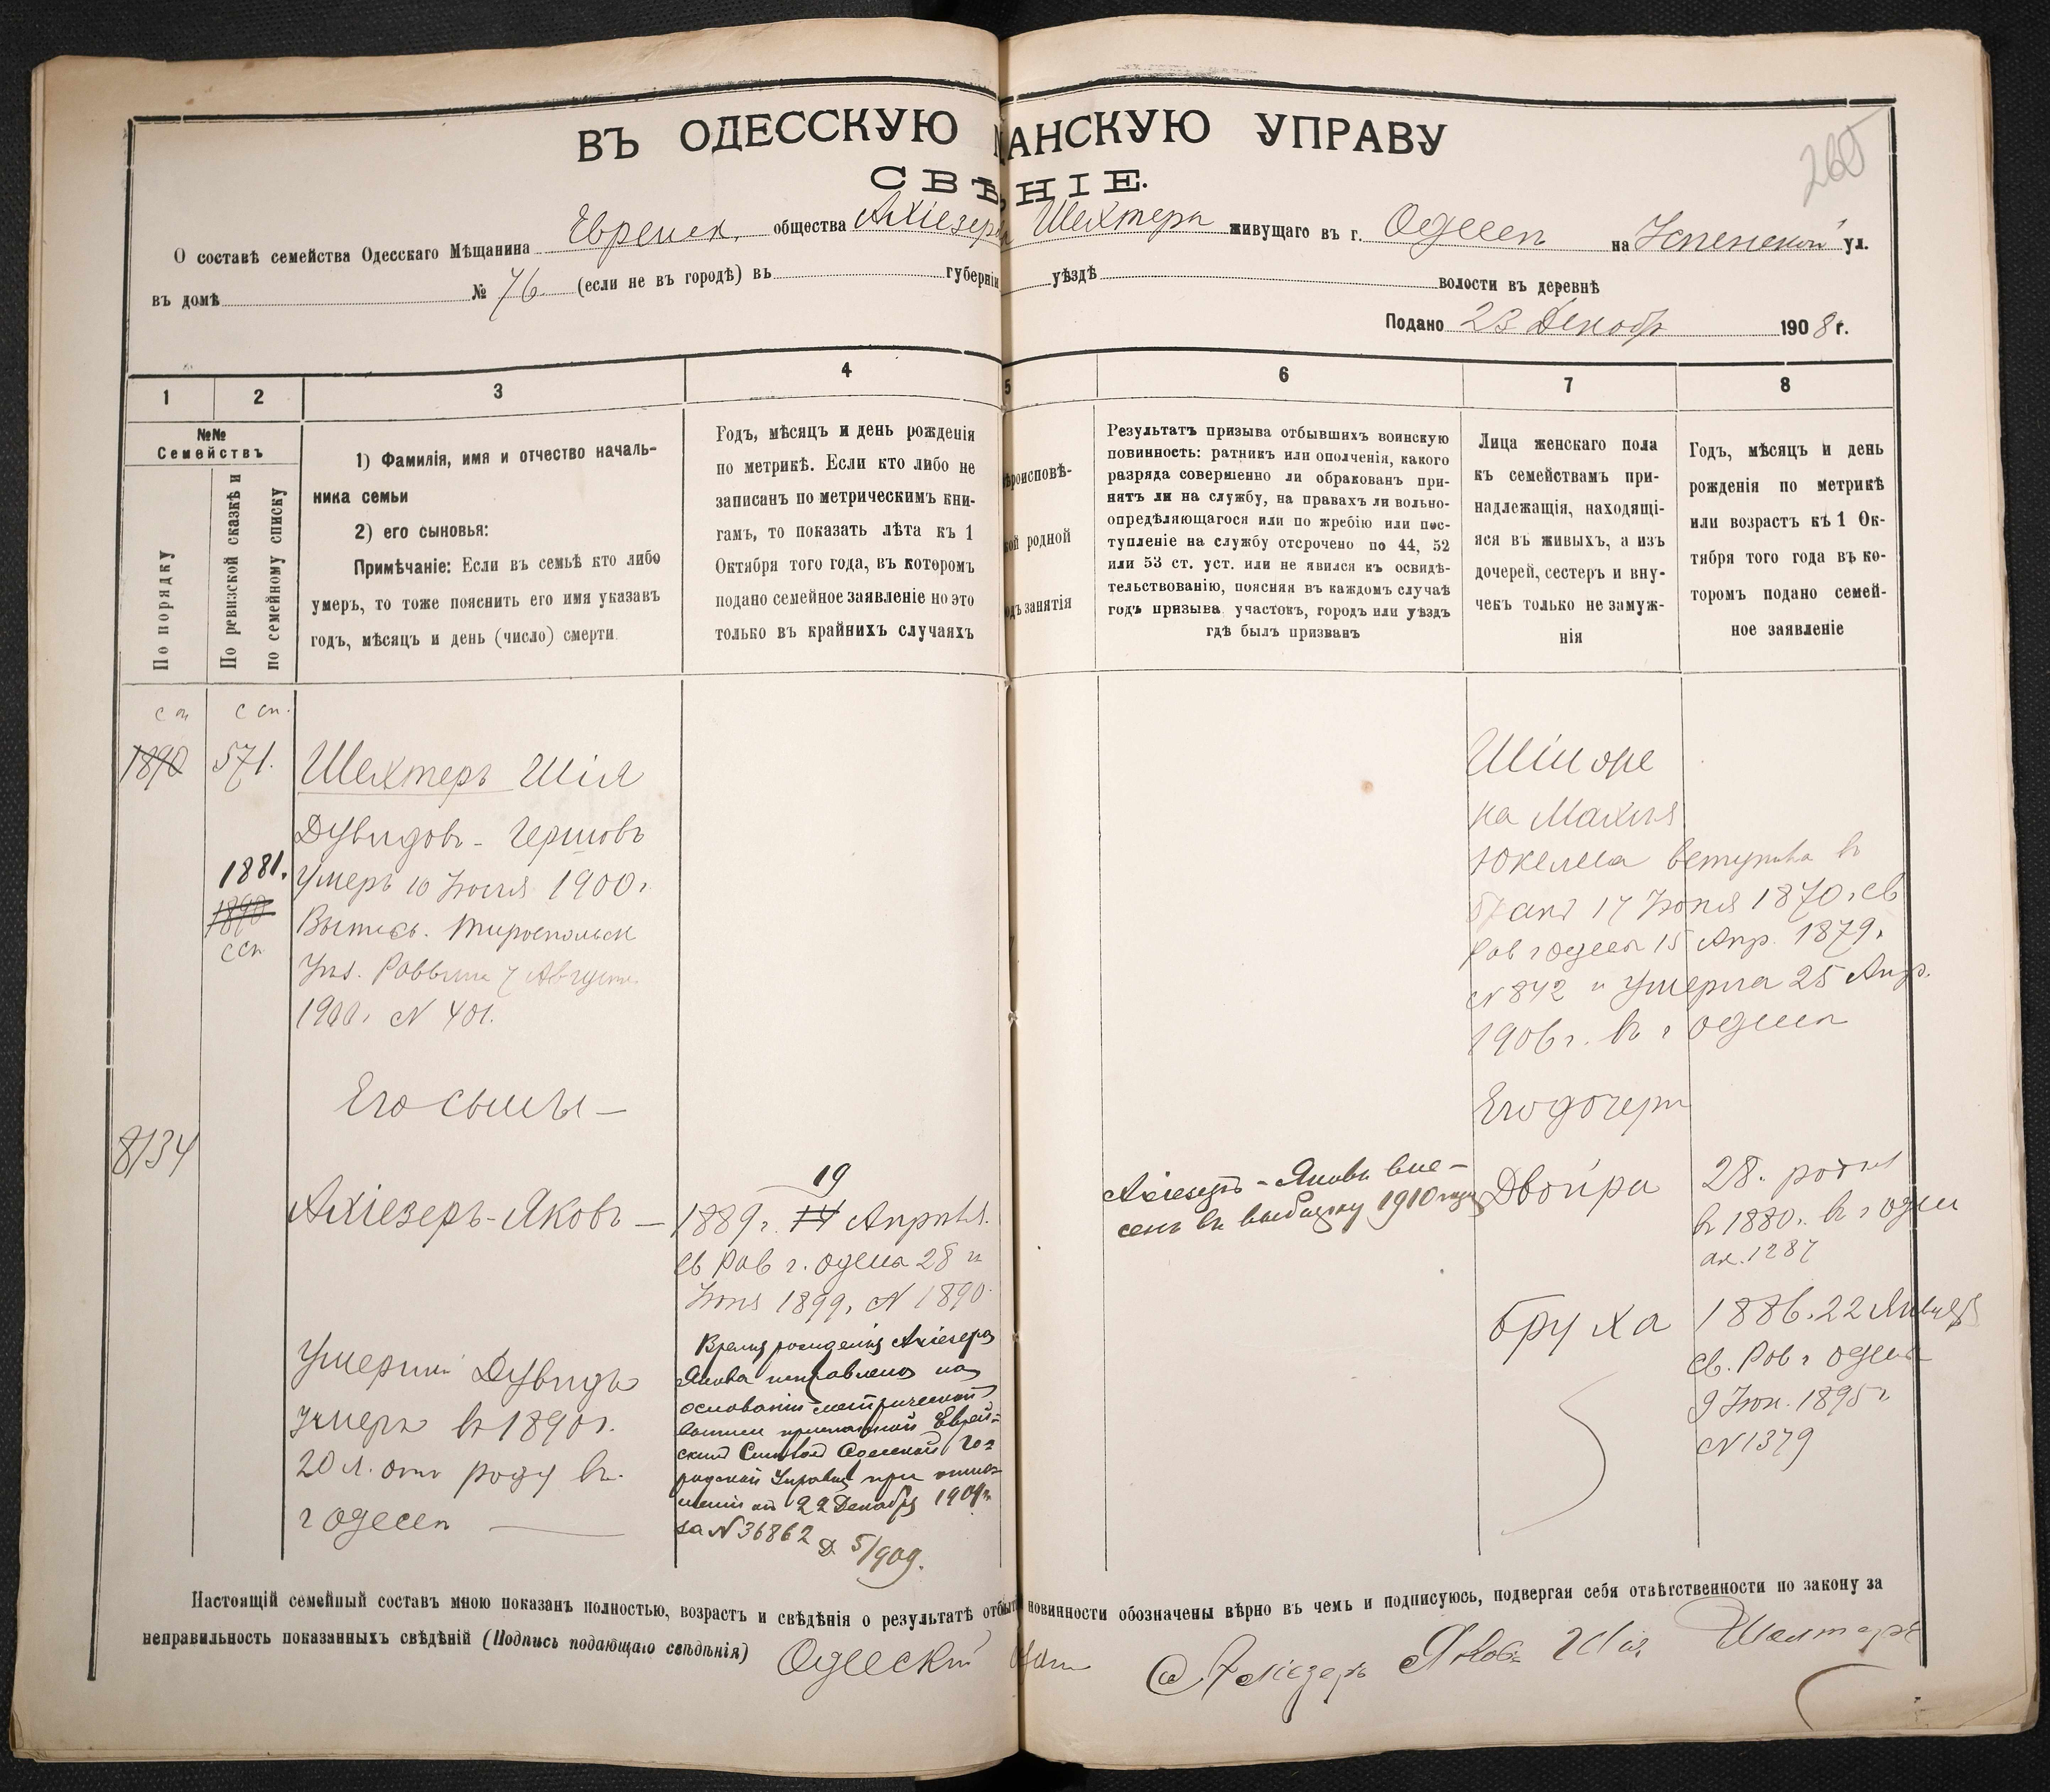 ВЪ ОДЕССКУЮ АНСКУЮ УПРАВУ
СВѢНІЕ.
260
О составѣ семейства Одесскаго Мѣщанина Евреиск. общества Ахіезера Шехтера живущаго въ г. Одессѣ на Успенской ул.
въ домѣ № 76 (если не въ городѣ) въ губерніи уѣздѣ волости въ деревнѣ
Подано 23 Декабр 1908 г.
1 2 3 4 5 6 7 8
№№
Семействъ
По порядку
По ревизской сказкѣ и
по семейному списку
1) Фамилія, имя и отчество началь-
ника семьи
2) его сыновья:
Примѣчаніе: Если въ семьѣ кто либо
умеръ, то тоже пояснить его имя указавъ
годъ, мѣсяцъ и день (число) смерти.
Годъ, мѣсяцъ и день рожденія
по метрикѣ. Если кто либо не
записанъ по метрическимъ кни-
гамъ, то показать лѣта къ 1
Октября того года, въ которомъ
подано семейное заявленіе но это
только въ крайнихъ случаяхъ
роисповѣ-
родной
занятія
Результатъ призыва отбывшихъ воинскую
повинность: ратникъ или ополченія, какого
разряда совершенно ли обракованъ при-
нятъ ли на службу, на правахъ ли вольно-
опредѣляющагося или по жребію или пос-
тупленіе на службу отсрочено по 44, 52
или 53 ст. уст. или не явился къ освидѣ-
тельствованію, поясняя въ каждомъ случаѣ
годъ призыва участокъ, городъ или уѣздъ
гдѣ былъ призванъ
Лица женскаго пола
къ семействамъ при-
надлежащія, находящі-
яся въ живыхъ, а изъ
дочерей, сестеръ и вну-
чекъ только не замуж-
нія
Годъ, мѣсяцъ и день
рожденія по метрикѣ
или возрастъ къ 1 Ок-
тября того года въ ко-
торомъ подано семей-
ное заявленіе
с сп.
1890 571.
1881.
1890
ссп
8134
Шехтеръ Шія
Дувидовъ - Гершовъ
Умеръ 10 Іюля 1900 г.
Выпись. Тираспольск
Раввина 7 Август
1900 г. N 401.
Его сыны —
Ахіезеръ-Яковъ —
Умершій Дувидъ
умеръ въ 1890 г.
20 л. отъ роду въ
г Одессѣ
19
1889 г. 14 Апрѣля.
св Рав г. Одессы 28
1899 г. N 1890
Время рожденія Ахіезера
Якова исправлено на
основаніи метрической
выписи Еврей-
скимъ Одесской Го-
родской Управы при отно-
шеніи отъ 22 Декабря 1909 г.
за N 36862 Д. 5/909.
Ахіезеръ - Яковъ вне-
сенъ въ 1910 года
Шіи
на Махля
вступила въ
17 1870 г. св
Рав г Одессы 15 Апр. 1879 г.
N 842 и умерла 25 Апр.
1906 г. въ г Одессѣ
Его дочери
Двойра
28.
въ 1880 г. въ г Одес
ак. 1287
Бруха
1886. 22 Января
св. Рав г Одессы
9 Іюн. 1895 г
N 1379
Настоящій семейный составъ мною показанъ полностью, возрастъ и свѣдѣнія о результатѣ отбыті повинности обозначены вѣрно въ чемъ и подписуюсь, подвергая себя отвѣтственности по закону за
неправильность показанныхъ свѣдѣній (Подпись подающаго свѣдѣнія) Одесскій Ахіезеръ Яковъ Шія Шехтеръ